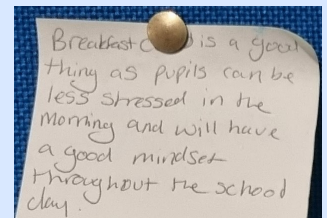 Breakfast is a good
thing as pupils can be
less stressed in the
morning and will have
a good mindset
throughout the school
day.